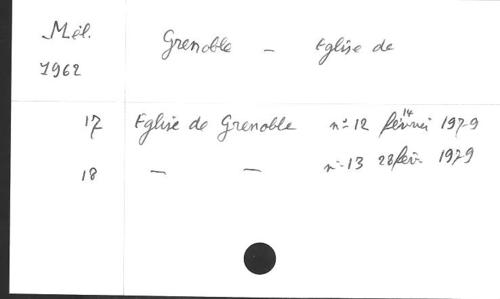 Mél. Grenoble - Eglise de
1962
14
17 Eglise de Grenoble n° 12 février 1979
18 — — n° 13 28 fév. 1979